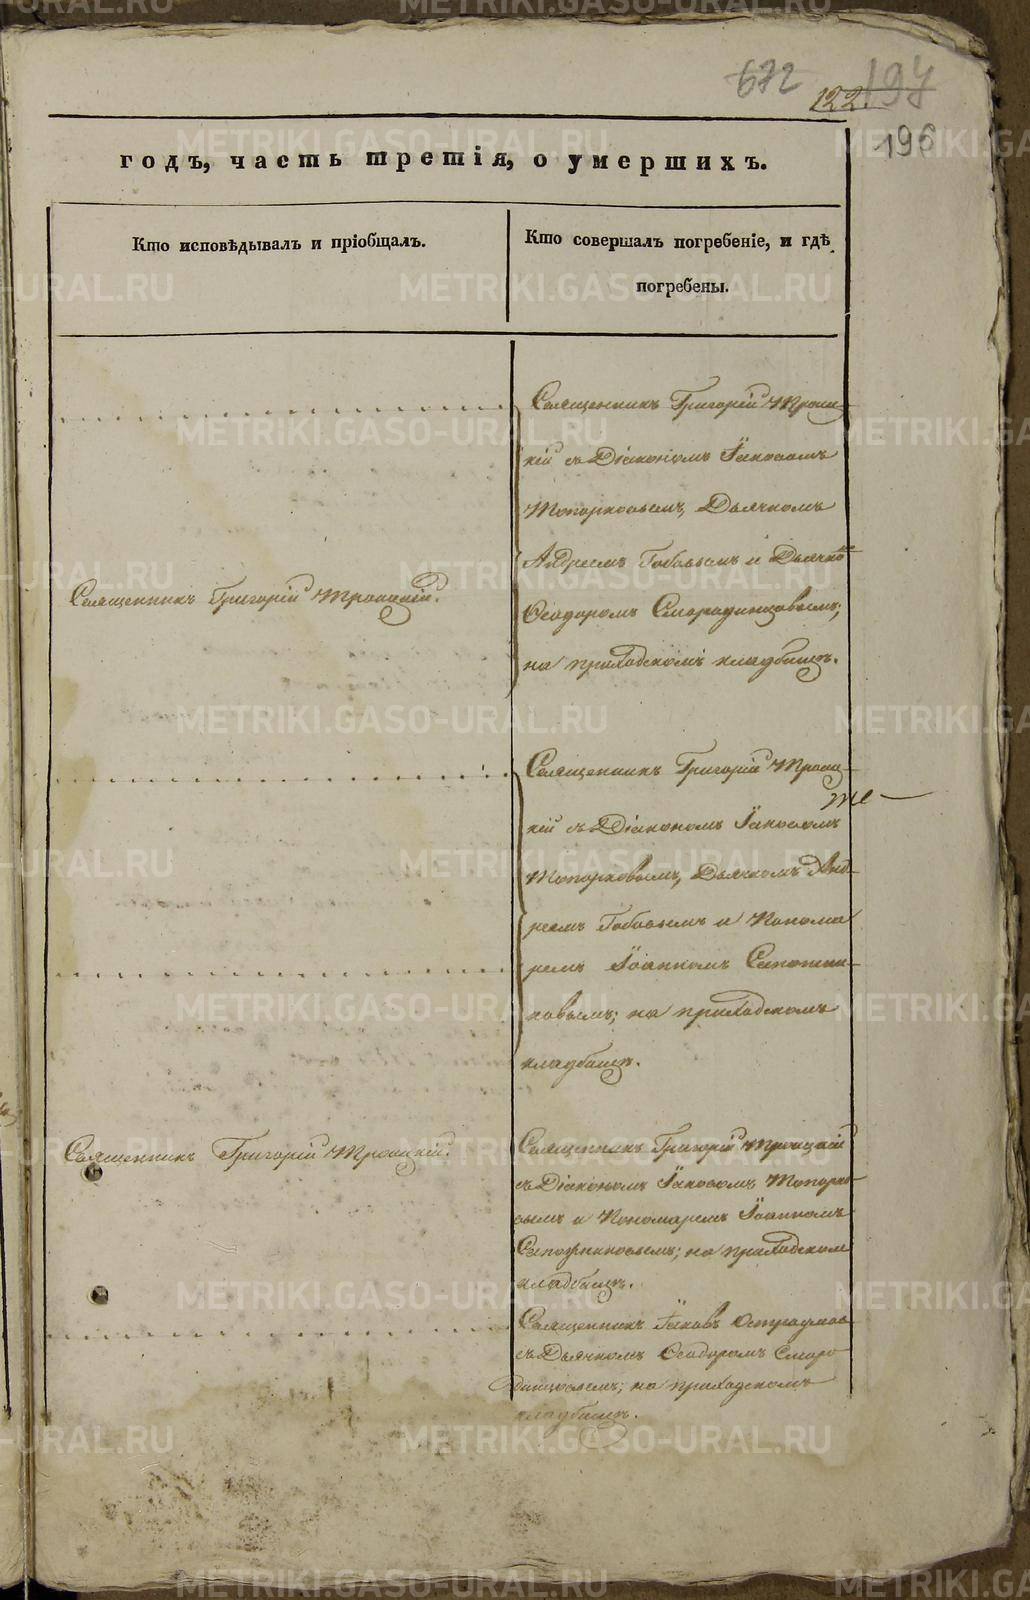 672
122.
197
196
годъ, часть третія, о умершихъ.
Кто исповѣдывалъ и пріобщалъ.
Кто совершалъ погребеніе, и гдѣ
погребены.
Священникъ Григорій Троиц-
кій съ Діакономъ Іаковомъ
Топорковымъ, Дьячкомъ
Андреемъ Бобовымъ и Дьячко
Священникъ Григорій Троицкій.
Ѳеодоромъ Смородинцовымъ;
на приходскомъ кладбищѣ.
Священникъ Григорій Троиц-
кій съ Діакономъ Іаковомъ
Топорковымъ, Дьячкомъ Анд-
реемъ Бобовымъ и Понома
ремъ Іоанномъ Сапожни-
ковымъ; на приходскомъ
кладбищѣ.
Священникъ Григорій Троицкій.
Священникъ Григорій Троицкій
съ Діакономъ Іаковомъ Топорко-
вымъ и Пономаремъ Іоанномъ
Сапожниковымъ; на приходском
кладбищѣ.
Священникъ Іаковъ Остроумов
съ Дьячкомъ Ѳеодоромъ Сморо
динцовымъ; на приходскомъ
кладбищѣ.
METRIKI.GASO-URAL.RU